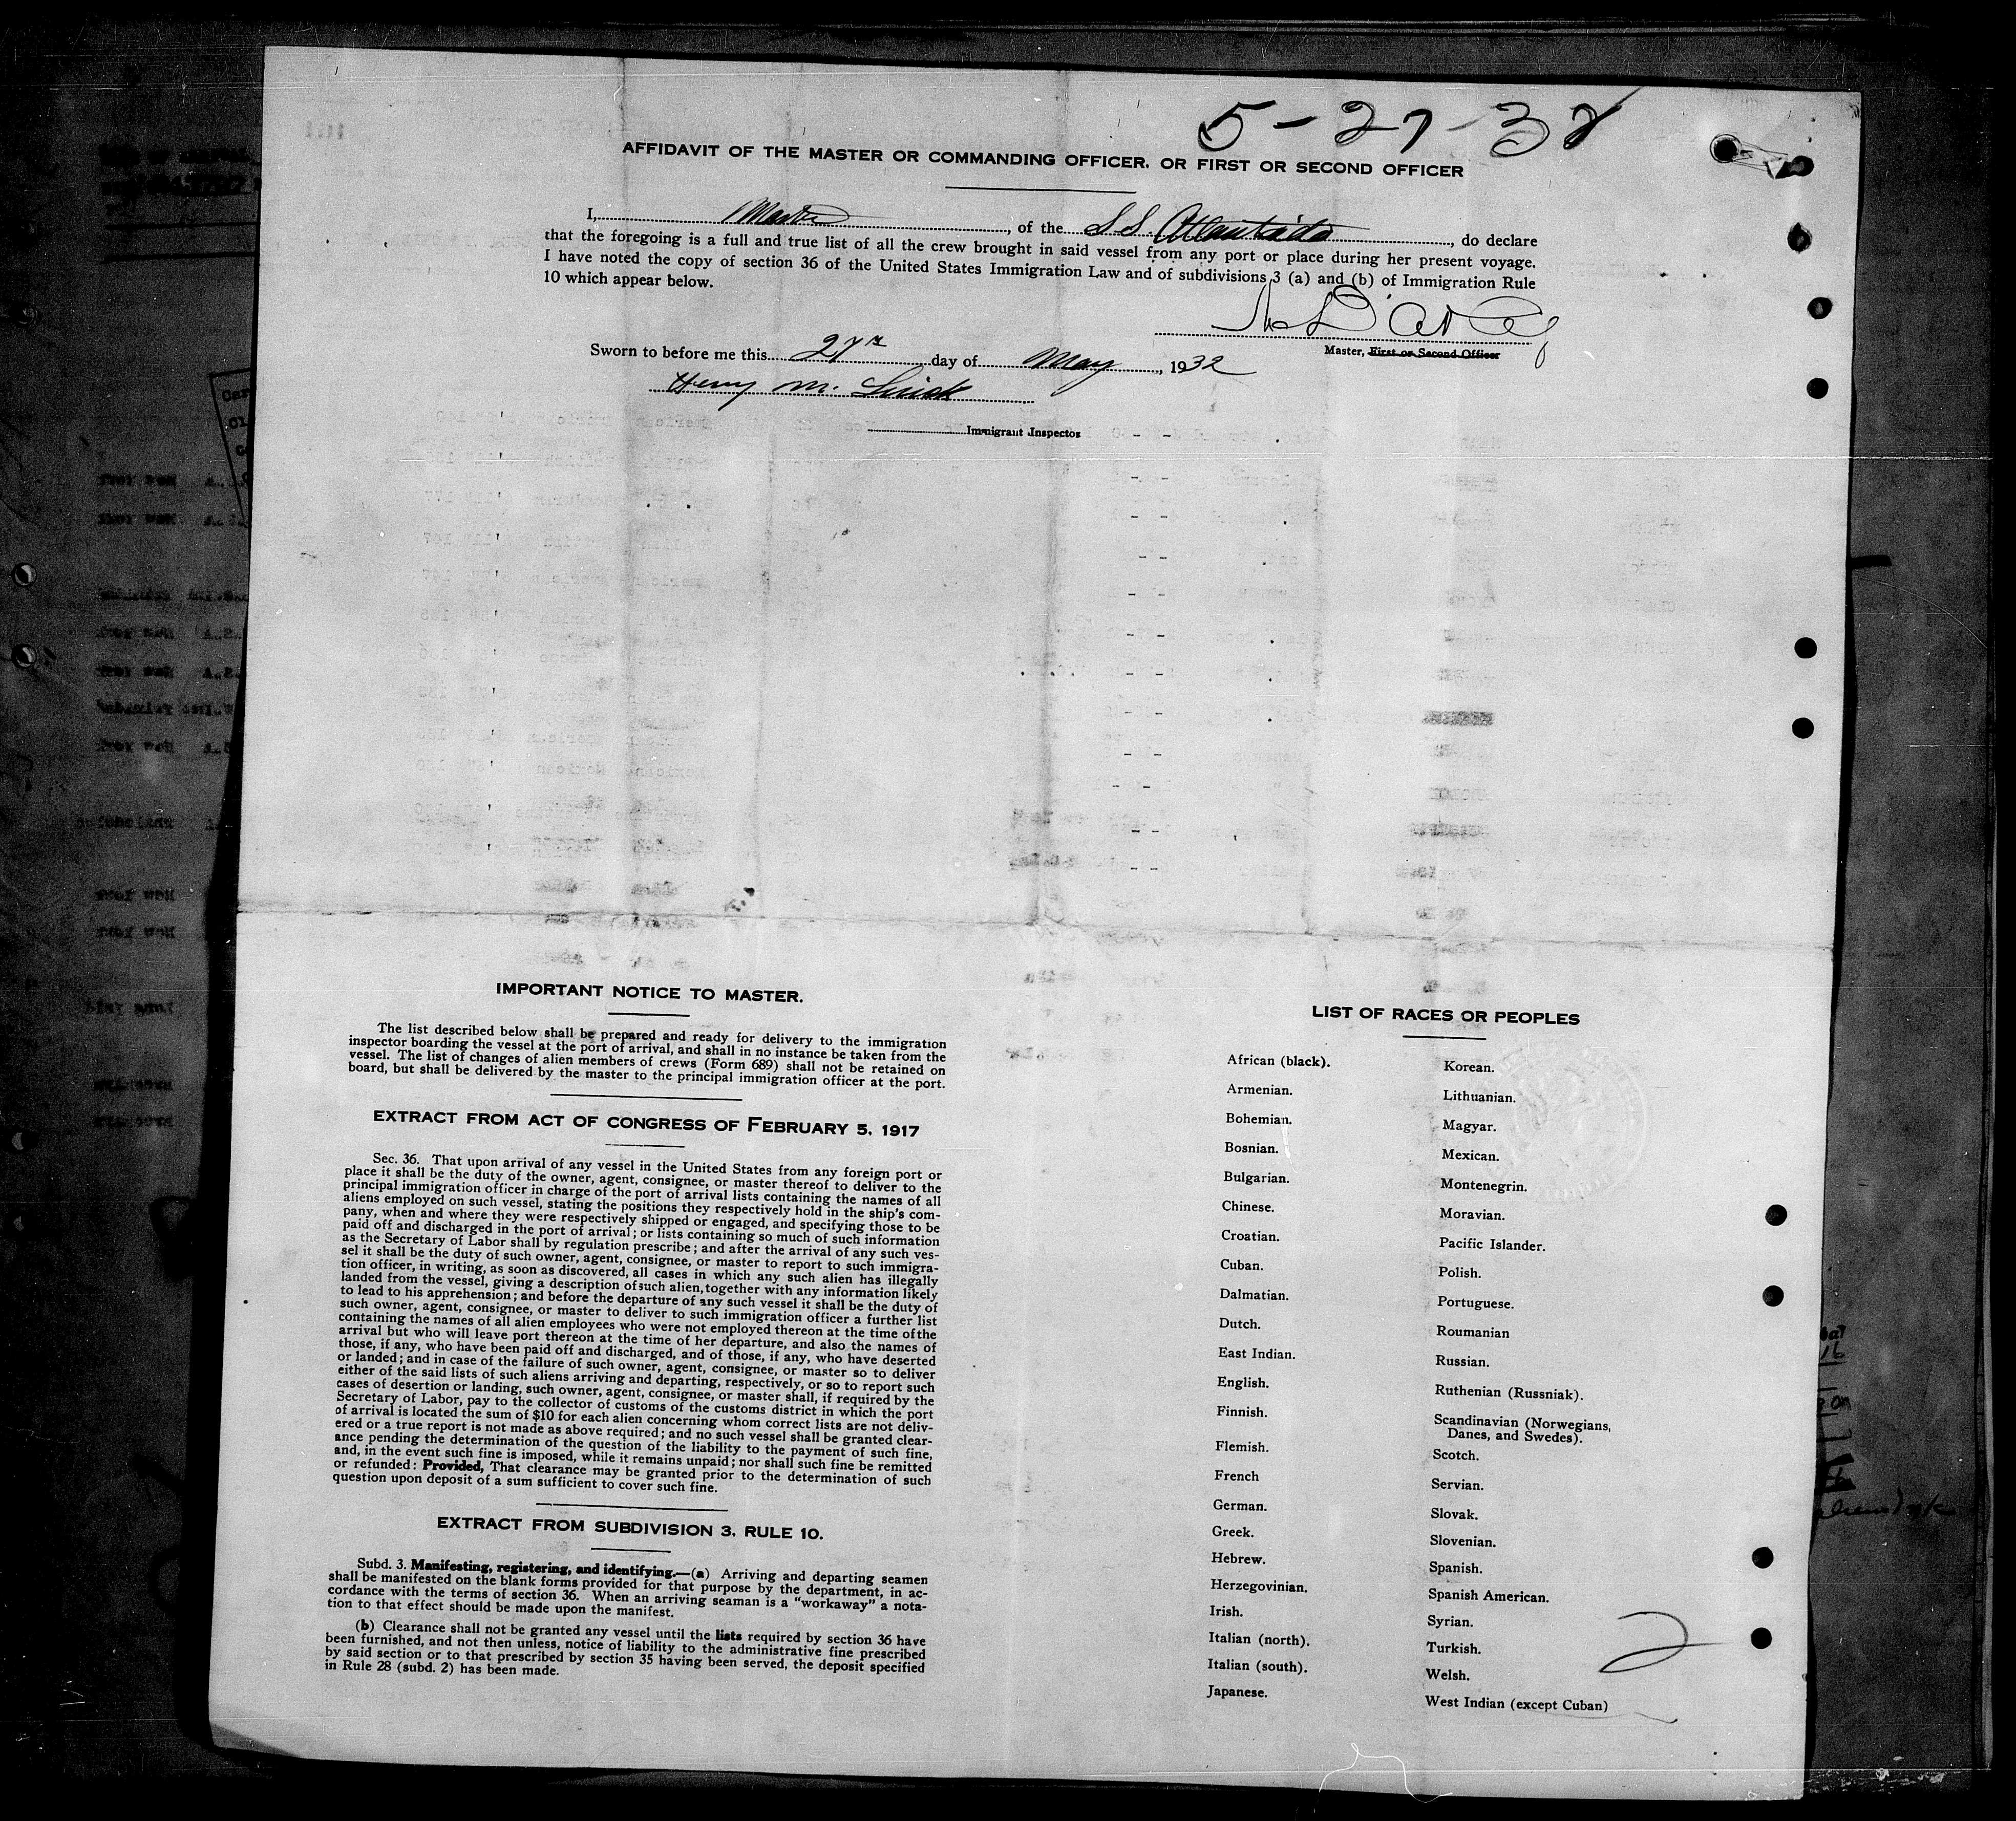 5-27-32
AFFIDAVIT OF THE MASTER OR COMMANDING OFFICER, OR FIRST OR SECOND OFFICER
I, Master, of the SS Atlantida, do declare
that the foregoing is a full and true list of all the crew brought in said vessel from any port or place during her present voyage.
I have noted the copy of section 36 of the United States Immigration Law and of subdivisions 3 (a) and (b) of Immigration Rule
10 which appear below.
Master, First or Second Officer
Sworn to before me this 27th day of May, 1932
Henry M.
Immigrant Inspector
IMPORTANT NOTICE TO MASTER.
The list described below shall be prepared and ready for delivery to the immigration
inspector boarding the vessel at the port of arrival, and shall in no instance be taken from the
vessel. The list of changes of alien members of crews (Form 689) shall not be retained on
board, but shall be delivered by the master to the principal immigration officer at the port.
EXTRACT FROM ACT OF CONGRESS OF FEBRUARY 5, 1917
Sec. 36. That upon arrival of any vessel in the United States from any foreign port or
place it shall be the duty of the owner, agent, consignee, or master thereof to deliver to the
principal immigration officer in charge of the port of arrival lists containing the names of all
aliens employed on such vessel, stating the positions they respectively hold in the ship's com-
pany, when and where they were respectively shipped or engaged, and specifying those to be
paid off and discharged in the port of arrival; or lists containing so much of such information
as the Secretary of Labor shall by regulation prescribe; and after the arrival of any such ves-
sel it shall be the duty of such owner, agent, consignee, or master to report to such immigra-
tion officer, in writing, as soon as discovered, all cases in which any such alien has illegally
landed from the vessel, giving a description of such alien, together with any information likely
to lead to his apprehension; and before the departure of any such vessel it shall be the duty of
such owner, agent, consignee, or master to deliver to such immigration officer a further list
containing the names of all alien employees who were not employed thereon at the time of the
arrival but who will leave port thereon at the time of her departure, and also the names of
those, if any, who have been paid off and discharged, and of those, if any, who have deserted
or landed; and in case of the failure of such owner, agent, consignee, or master so to deliver
either of the said lists of such aliens arriving and departing, respectively, or so to report such
cases of desertion or landing, such owner, agent, consignee, or master shall, if required by the
Secretary of Labor, pay to the collector of customs of the customs district in which the port
of arrival is located the sum of $10 for each alien concerning whom correct lists are not deliv-
ered or a true report is not made as above required; and no such vessel shall be granted clear-
ance pending the determination of the question of the liability to the payment of such fine,
and, in the event such fine is imposed, while it remains unpaid; nor shall such fine be remitted
or refunded: Provided, That clearance may be granted prior to the determination of such
question upon deposit of a sum sufficient to cover such fine.
EXTRACT FROM SUBDIVISION 3, RULE 10.
Subd. 3. Manifesting, registering, and identifying.—(a) Arriving and departing seamen
shall be manifested on the blank forms provided for that purpose by the department, in ac-
cordance with the terms of section 36. When an arriving seaman is a "workaway" a nota-
tion to that effect should be made upon the manifest.
(b) Clearance shall not be granted any vessel until the lists required by section 36 have
been furnished, and not then unless, notice of liability to the administrative fine prescribed
by said section or to that prescribed by section 35 having been served, the deposit specified
in Rule 28 (subd. 2) has been made.
LIST OF RACES OR PEOPLES
African (black).
Armenian.
Bohemian.
Bosnian.
Bulgarian.
Chinese.
Croatian.
Cuban.
Dalmatian.
Dutch.
East Indian.
English.
Finnish.
Flemish.
French
German.
Greek.
Hebrew.
Herzegovinian.
Irish.
Italian (north).
Italian (south).
Japanese.
Korean.
Lithuanian.
Magyar.
Mexican.
Montenegrin.
Moravian.
Pacific Islander.
Polish.
Portuguese.
Roumanian
Russian.
Ruthenian (Russniak).
Scandinavian (Norwegians,
Danes, and Swedes).
Scotch.
Servian.
Slovak.
Slovenian.
Spanish.
Spanish American.
Syrian.
Turkish.
Welsh.
West Indian (except Cuban)
2